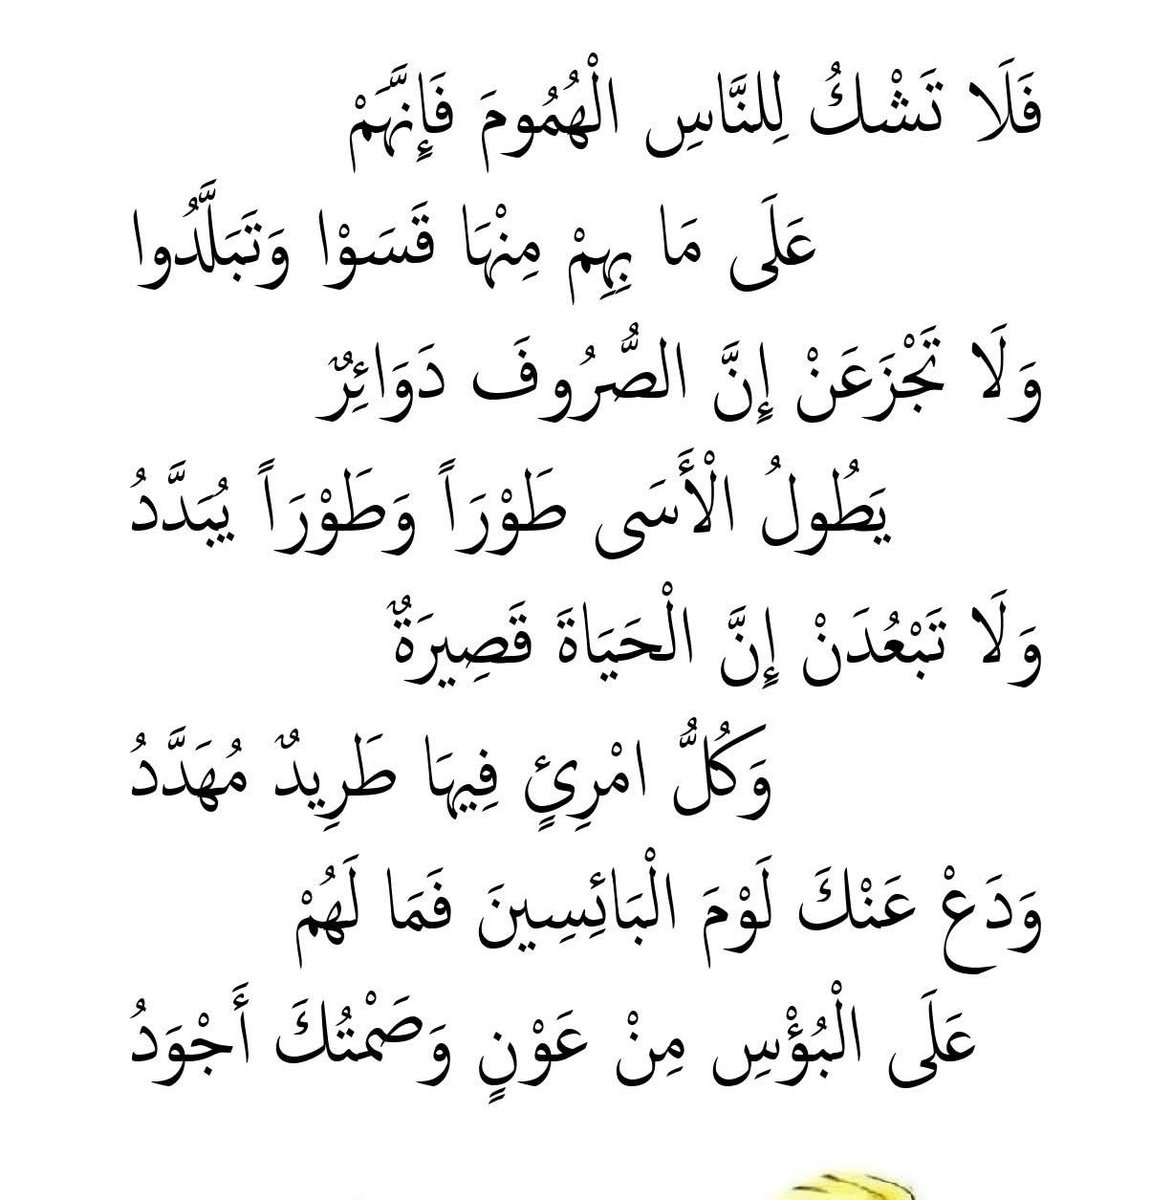 فَلَا تَشْكُ لِلنَّاسِ الْهُمُومَ فَإِنَّهُمْ
عَلَى مَا بِهِمْ مِنْهَا قَسَوْا وَتَبَلَّدُوا
وَلَا تَجْزَعَنْ إِنَّ الصُّرُوفَ دَوَائِرٌ
يَطُولُ الْأَسَى طَوْرَاً وَطَوْرَاً يُبَدَّدُ
وَلَا تَبْعُدَنْ إِنَّ الْحَيَاةَ قَصِيرَةٌ
وَكُلُّ امْرِئٍ فِيهَا طَرِيدٌ مُهَدَّدُ
وَدَعْ عَنْكَ لَوْمَ الْبَائِسِينَ فَمَا لَهُمْ
عَلَى الْبُؤْسِ مِنْ عَوْنٍ وَصَمْتُكَ أَجْوَدُ